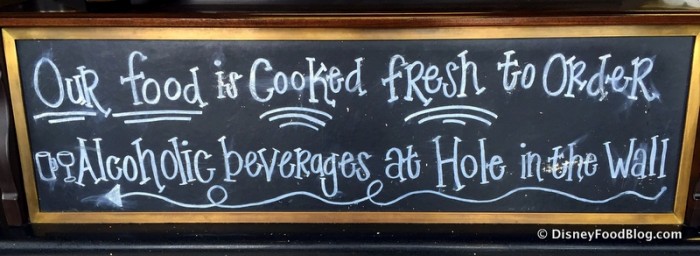 Our food is Cooked fresh to Order
Alcoholic beverages at Hole in the Wall
© DisneyFoodBlog.com